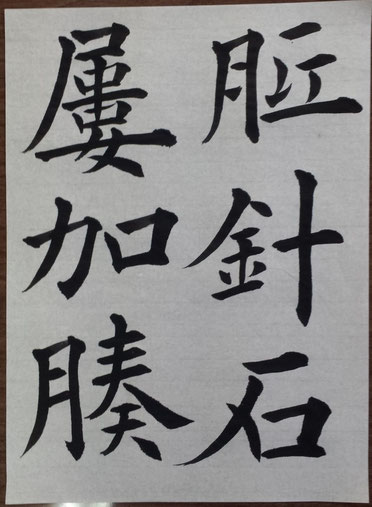 胝針石
屢加腠